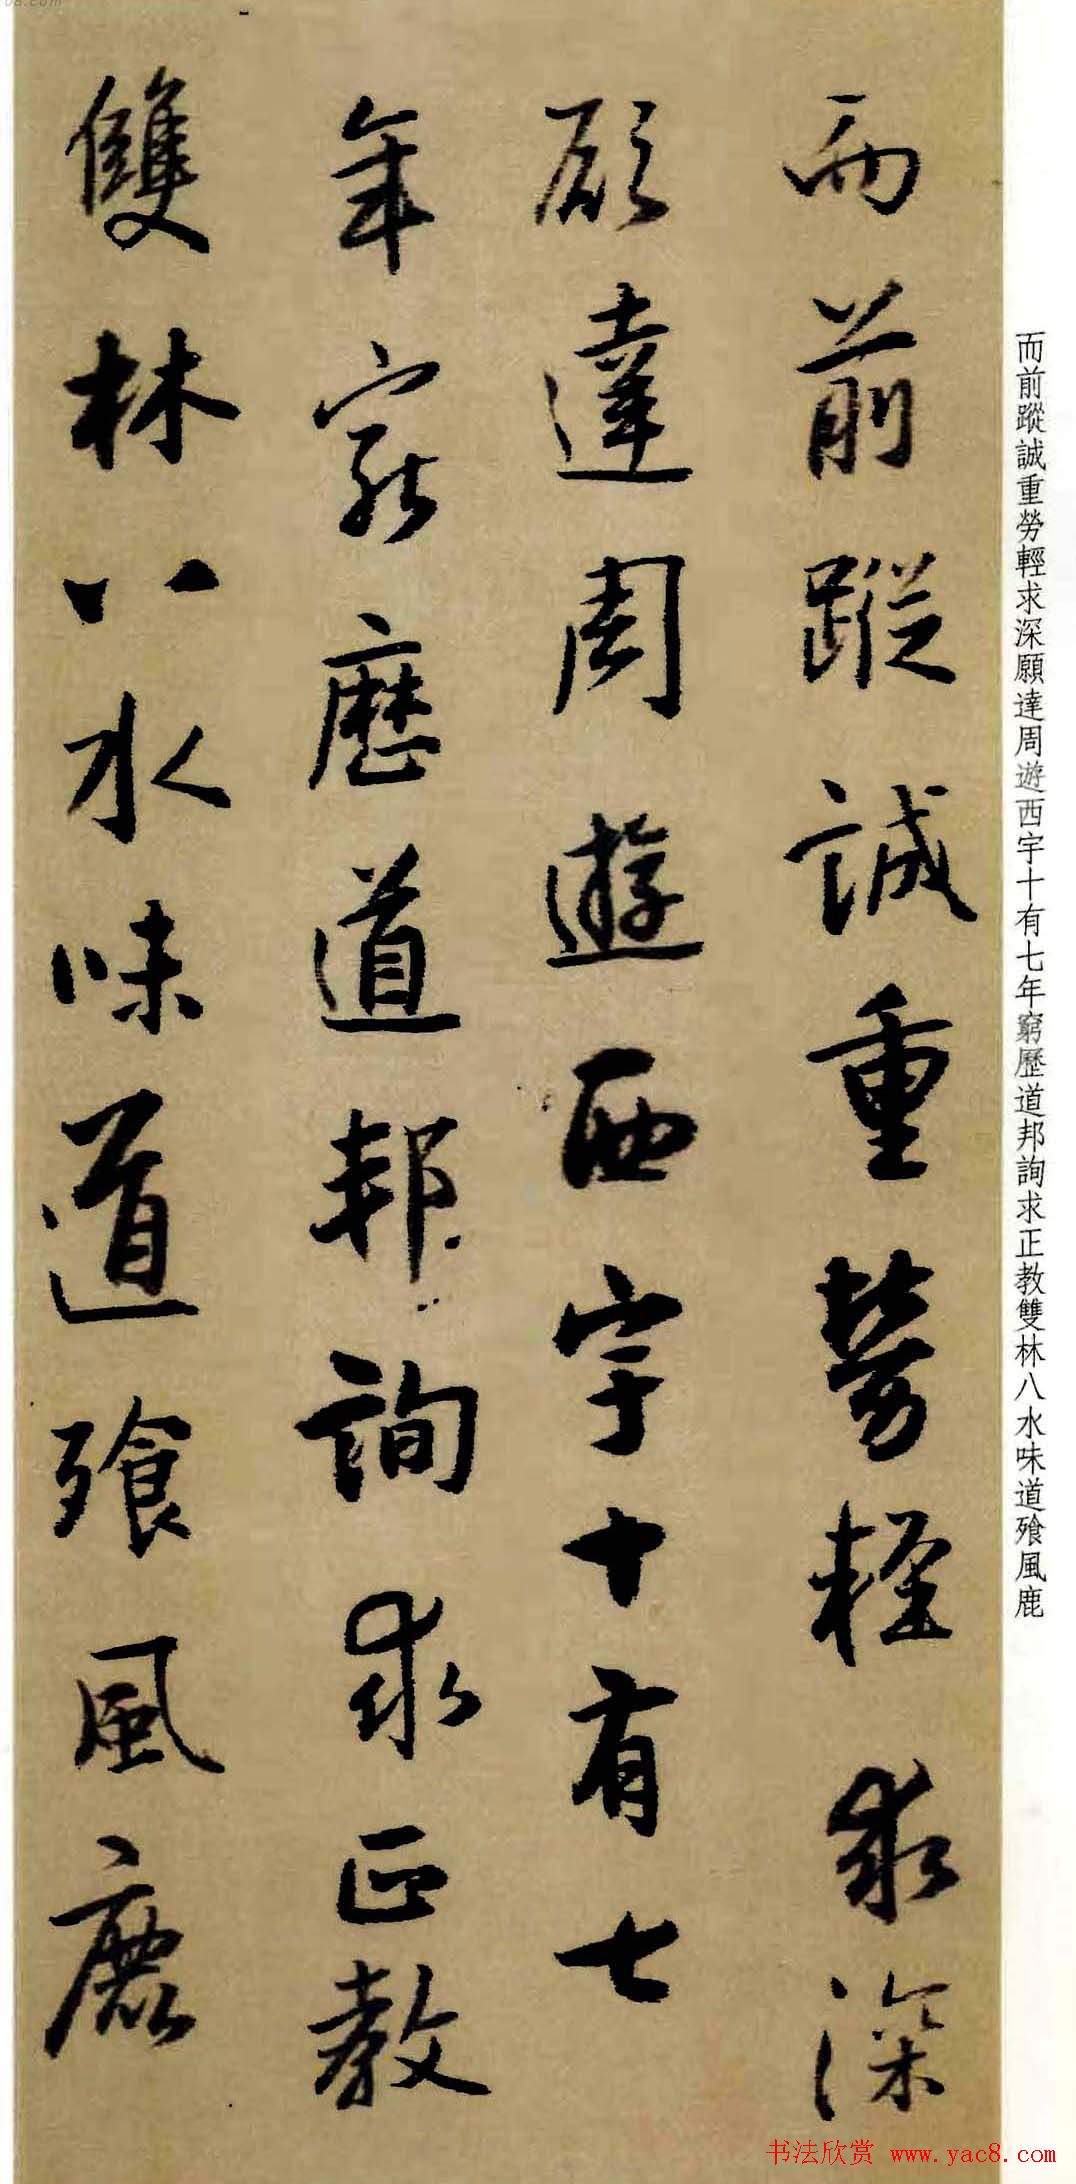 而前蹤誠重勞輕求深
願達周遊西宇十有七
年窮歷道邦詢求正教
雙林八水味道飱風鹿
而前蹤誠重勞輕求深願達周遊西宇十有七年窮歷道邦詢求正教雙林八水味道飱風鹿
书法欣赏 www.yac8.com